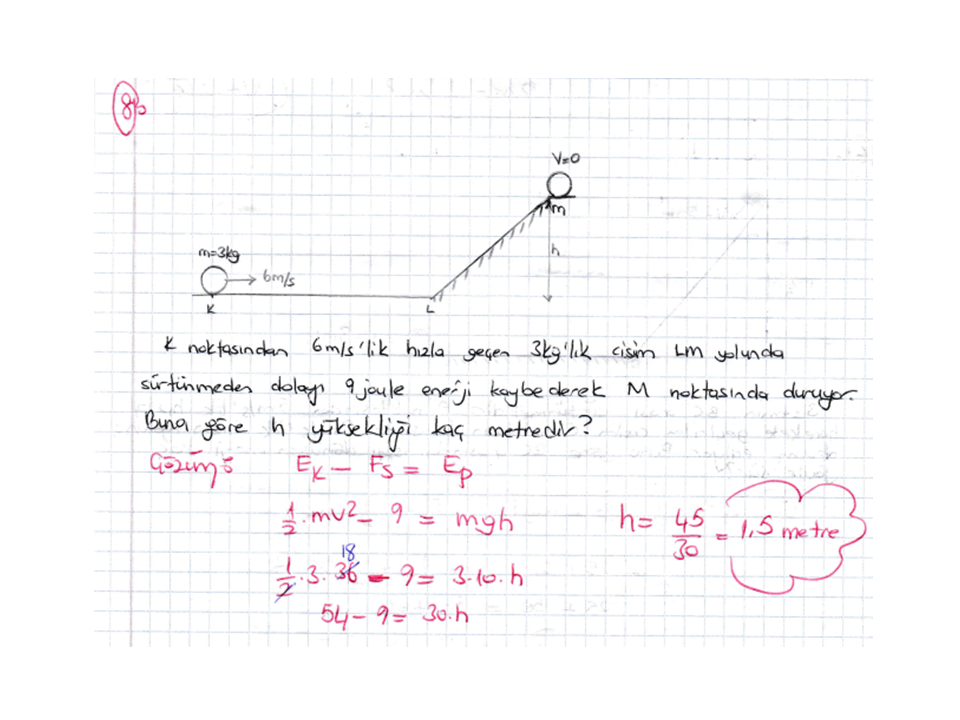 8
V=0
M
h
m=3kg
6m/s
K
L
K noktasından 6m/s'lik hızla geçen 3kg'lık cisim LM yolunda
sürtünmeden dolayı 9 joule enerji kaybederek M noktasında duruyor.
Buna göre h yüksekliği kaç metredir?
Çözüm:
EK - FS = EP
1/2 . mv² - 9 = mgh
18
1/2 . 3 . 36 - 9 = 3.10.h
54 - 9 = 30.h
h = 45/30 = 1,5 metre